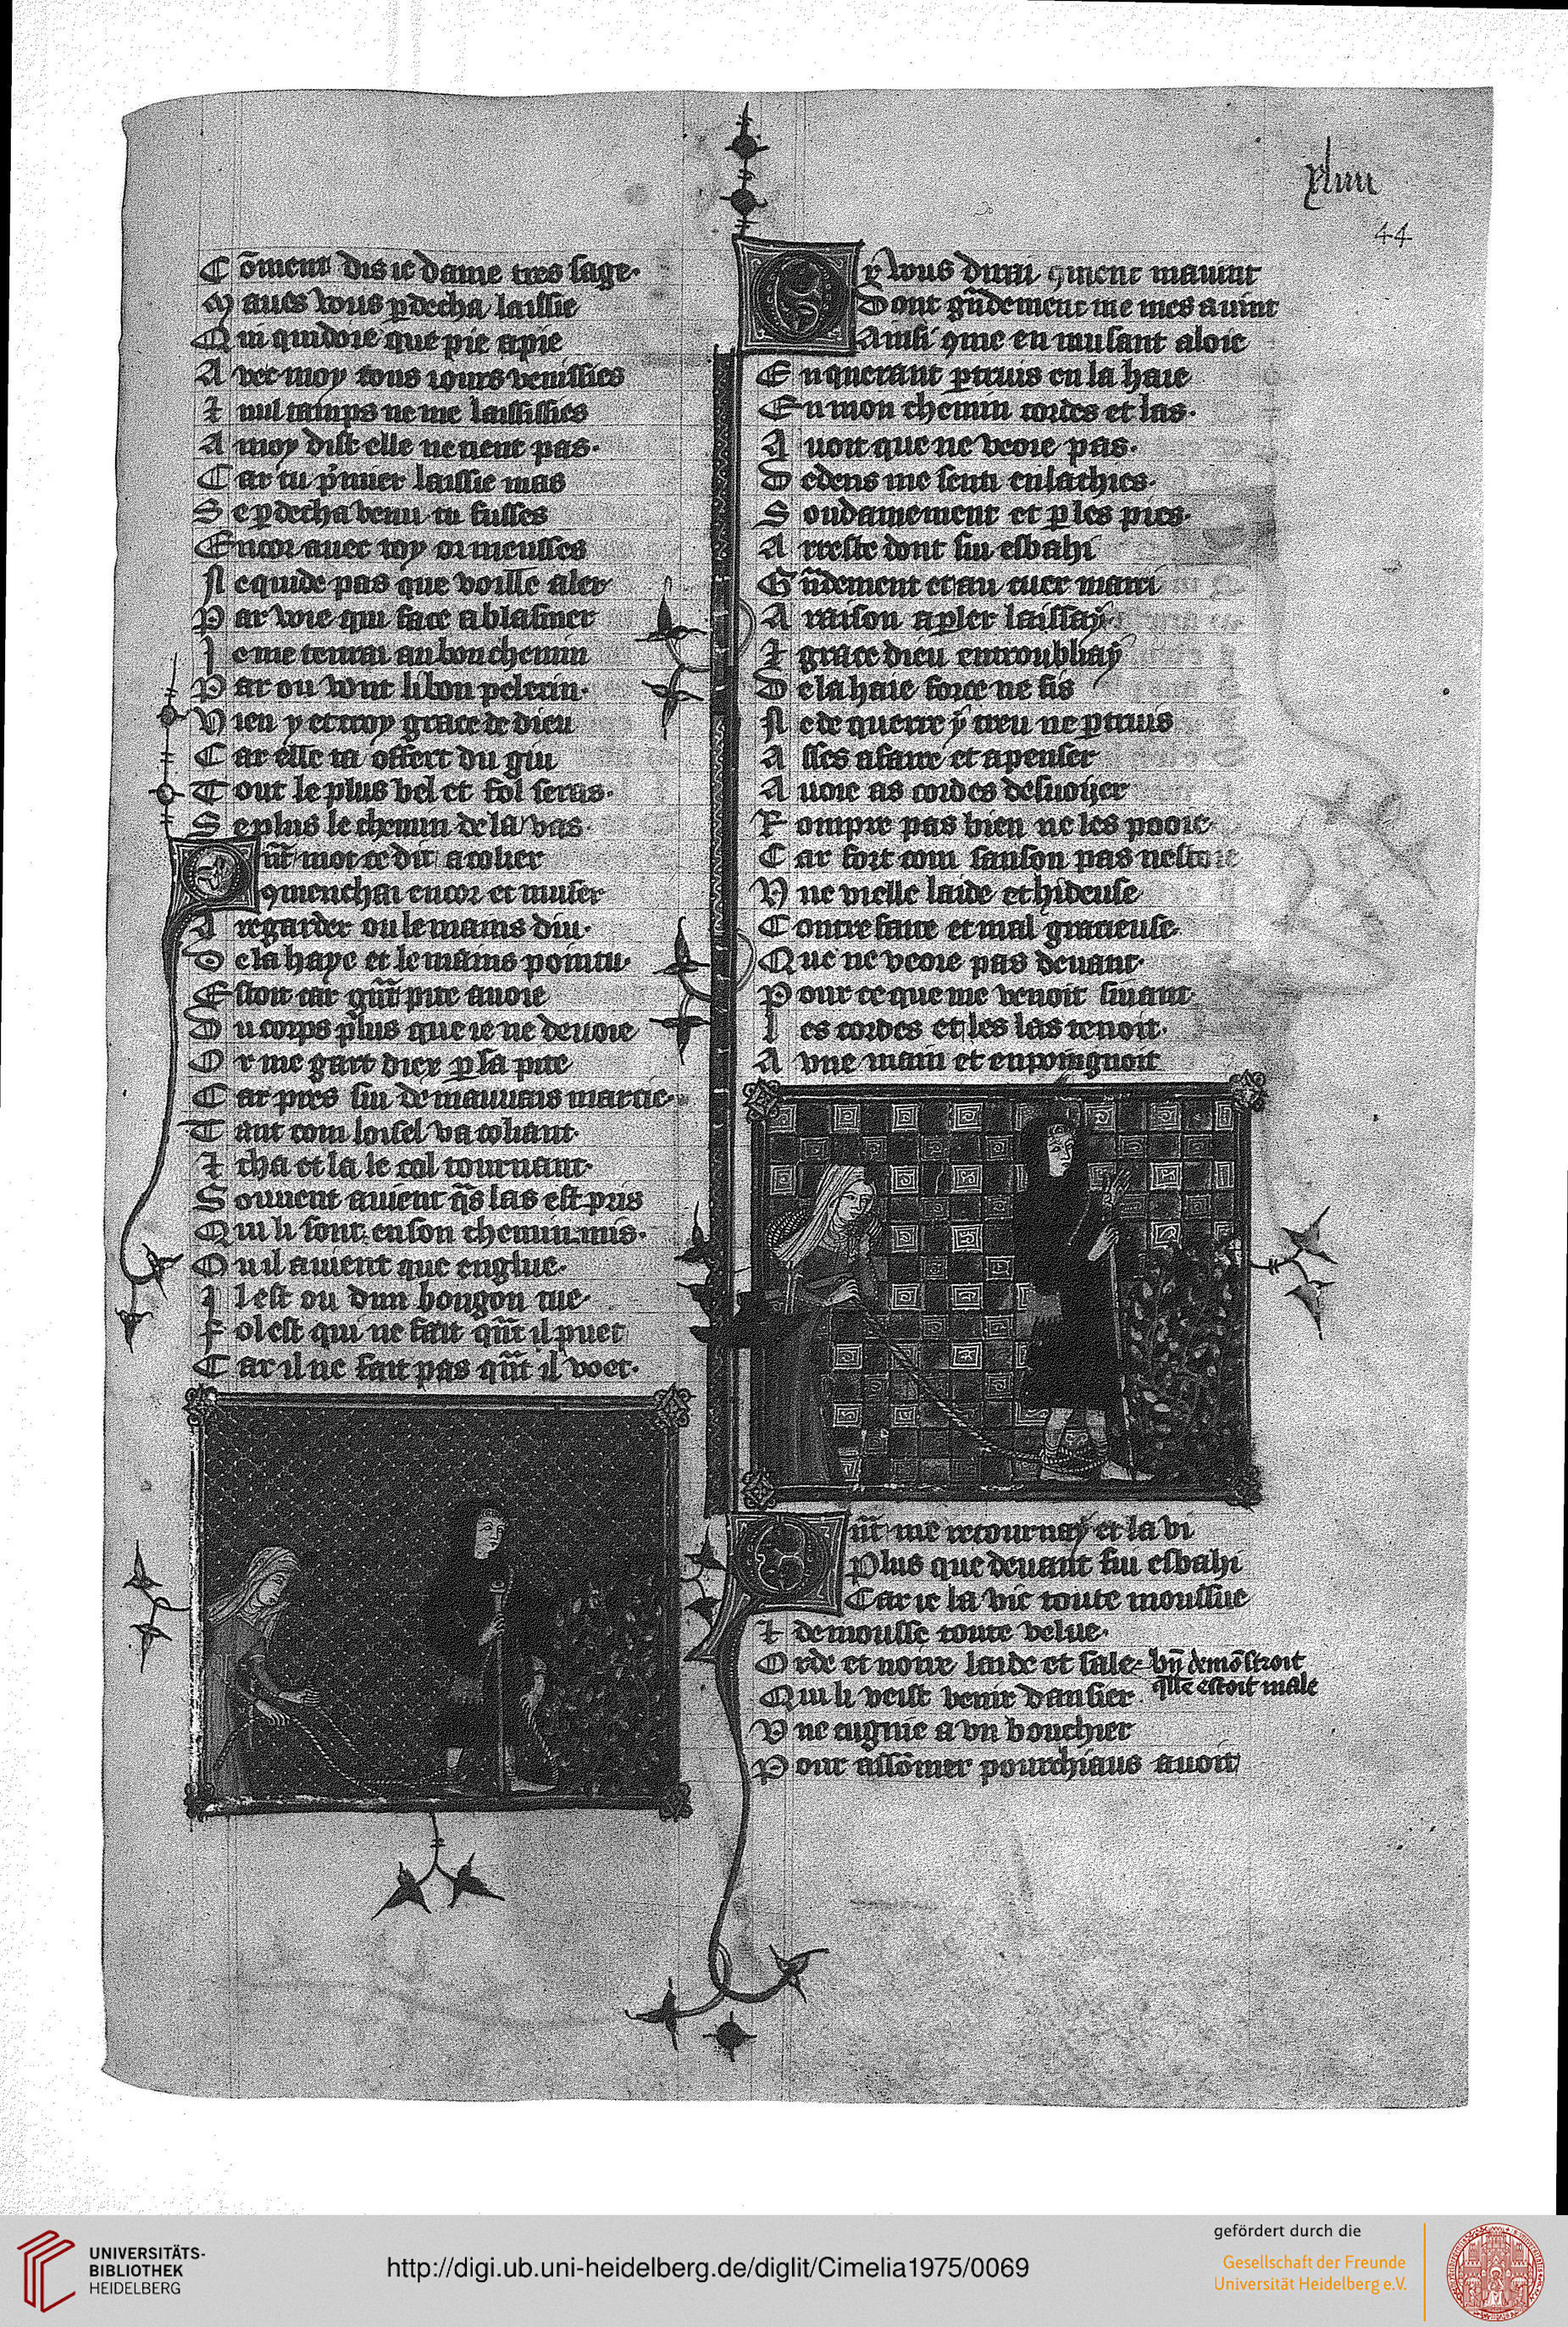 xliiii
44
Cōment dis ie dame tres sage·
M aues vous ꝑdecha laissie
Qui quidoie que pie a pie
Auec moy tous iours venissies
⁊ nul tamps ne me laississies
A moy dist elle ne tient pas·
Car tu p̄mier laissie mas
Se ꝑ decha venu tu fusses
Encor auec toy or meusses
Ne quide pas que voille aler
Par voie qui face a blasmer
Ie me tenrai au bon chemin
Par ou vont li bon pelerin·
Vien y et croy grace de dieu
Car elle ta offert du giu
Tout le plus bel et fol seras·
Se plus le chemin de la vas·
Qn̄t mot ce dit a colier
ꝯmenchai encor et muser
A regarder ou le mains dru·
De la haye et le mains pointu·
Estoit car gn̄t pite auoie
Du corps plus que ie ne deuoie
Or me gart diex ꝑ sa pite
Car pres sui de mauuais marcie·
Tant com loisel va coliant·
⁊ cha et la le col tournant·
Souuent auient q̄s las est pris
Qui li sont en son chemin mis·
Ou il auient que englue·
Il est ou dun bougon tue·
Fol est qui ne fait qn̄t il puet
Car il ne fait pas qn̄t il voet·
Or vous dirai ꝯment mauint
Dont gn̄dement me mes auint
Ainsi ꝯme en musant aloie
En querant ꝑtruis en la haie
En mon chemin cordes et las·
Auoit que ne veoie pas·
Dedens me senti enlachies·
Soudainement et ꝑ les pies·
Arreste dont fui esbahi
Gn̄dement et au cuer marri
A raison aꝑler laissay·
⁊ grace dieu entroubliay
De la haie force ne fis
Ne de querre y treu ne ꝑtruis
Asses a faire et a penser
Auoie as cordes desuoyer
Rompre pas bien ne les pooie·
Car fort com sanson pas nestoie
Vne vielle laide et hideuse
Contrefaite et mal gracieuse·
Que ne veoie pas deuant·
Pour ce que me venoit siuant
les cordes et les las tenoit·
A vne main et enpoingnoit
Qn̄t me retournay et la vi
Plus que deuant fui esbahi
Car ie la vic toute moussue
⁊ de mousse toute velue·
Orde et noire laide et sale· bn̄ demōstroit
qlle estoit male
Qui li veist venir dansier·
Vne cugnie a vn bouchier
Pour assōmer pourchiaus auoit
UNIVERSITÄTS-
BIBLIOTHEK
HEIDELBERG
http://digi.ub.uni-heidelberg.de/diglit/Cimelia1975/0069
gefördert durch die
Gesellschaft der Freunde
Universität Heidelberg e.V.